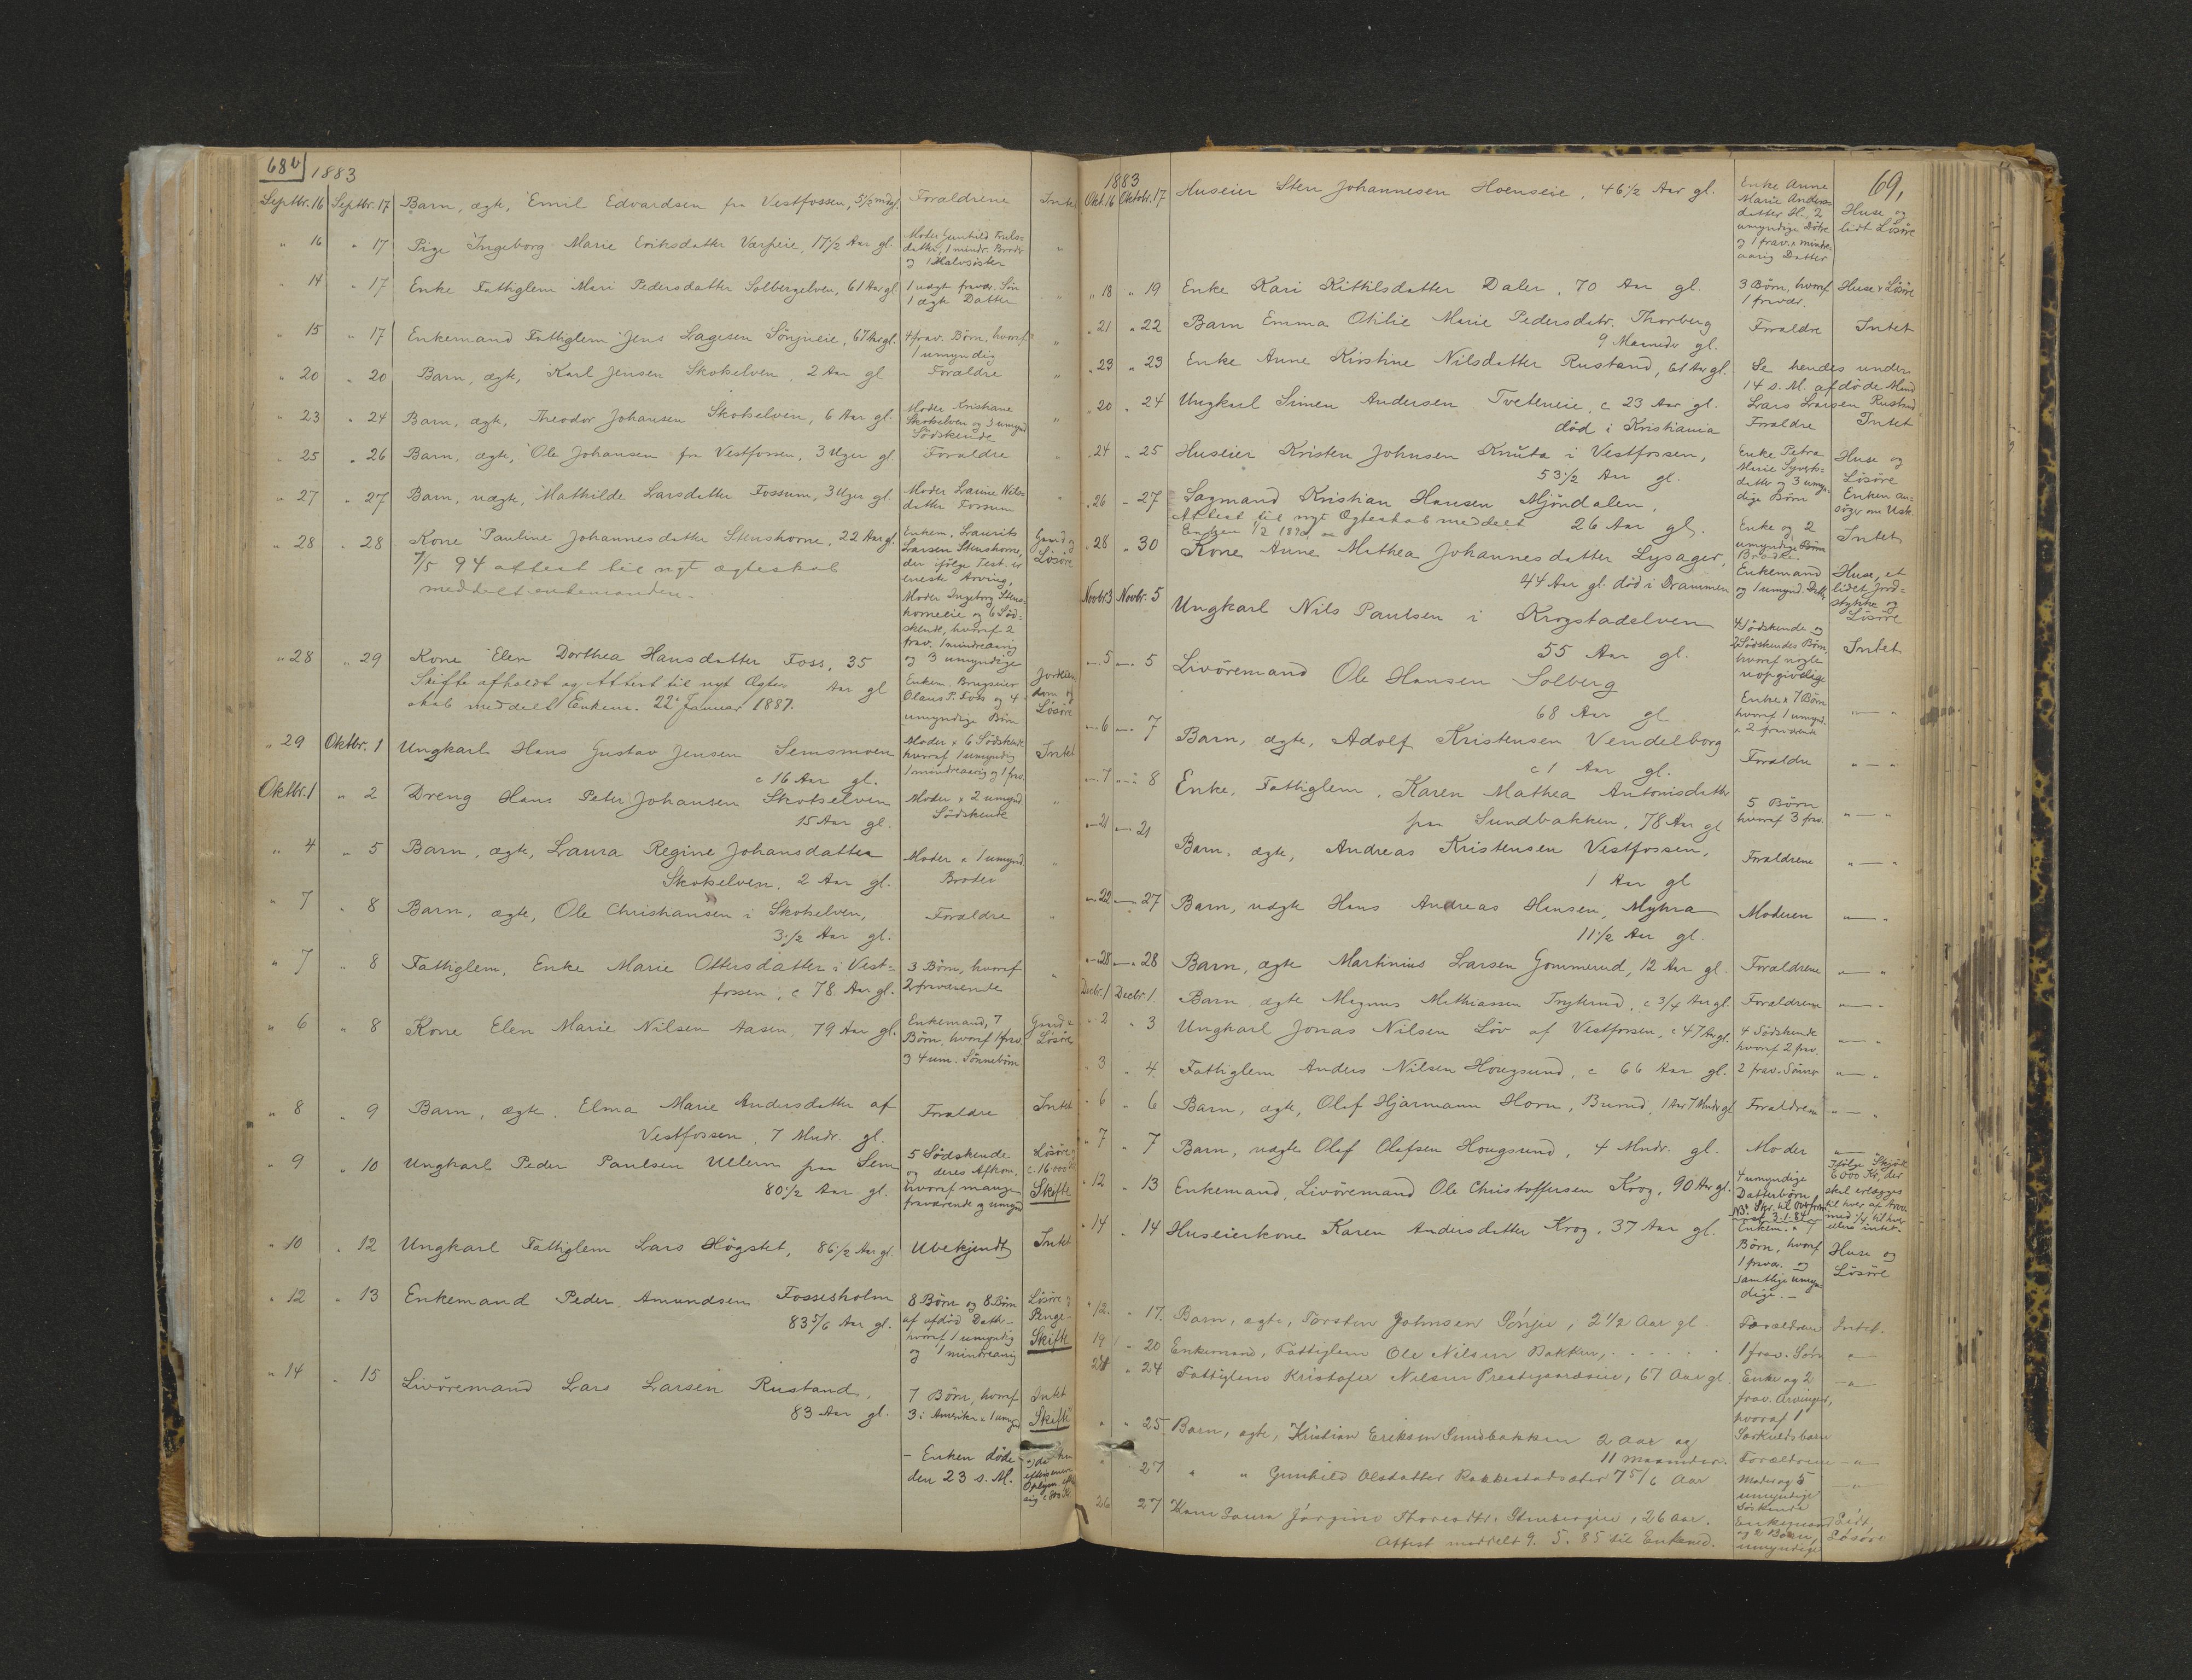 68b
1883
Septbr. 16 Septbr. 17 Barn, ægte, Emil Edvardsen fra Vestfossen, 5½ mdr gl. Forældrene Intet
" 16 " 17 Pige Ingeborg Marie Eriksdatter Varpeie, 17½ Aar gl. Moder Gunhild Truls=
datter, 1 mindr. Broder
og 1 Halvsøster "
" 14 " 17 Enke Fattiglem Mari Pedersdatter Solbergelven, 61 Aar gl 1 uægt fravær. Søn
1 ægte Datter "
" 15 " 17 Enkemand Fattiglem Jens Lagesen Sönjueie, 67 Aar gl. 4 frav. Börn, hvoraf
1 umyndig "
" 20 " 20 Barn, ægte, Karl Jensen Skotselven, 2 Aar gl Forældre "
" 23 " 24 Barn, ægte, Theodor Johansen Skotselven, 6 Aar gl. Moder Kristiane
Skotselven og 3 umynd
Södskende "
" 25 " 26 Barn, ægte, Ole Johansen fra Vestfossen, 3 Uger gl. Forældre "
" 27 " 27 Barn, uægte, Mathilde Larsdatter Fossum, 3 Uger gl. Moder Laurine Nils=
datter Fossum "
" 28 " 28 Kone Pauline Johannesdatter Stenshorne, 22 Aar gl. Enkem. Laurits
Larsen Stenshorne,
der ifølge Test. er
eneste Arving, Gaard og
Lösöre
7/5 94 attest til nyt ægteskab
meddelt enkemanden.
Moder Ingeborg Stens=
horneeie og 6 Söd=
skende, hvoraf 2
frav. 1 mindreaarig
og 3 umyndige
" 28 " 29 Kone Elen Dorthea Hansdatter Foss, 35
Aar gl
Skifte afholdt og Attest til nyt Ægte=
skab meddelt Enkem. 22 Januar 1887.
Enkem. Brugseier
Olaus P. Foss og 4
umyndige Börn
Jordeien=
dom og
Lösöre
" 29 Oktbr. 1 Ungkarl Hans Gustav Jensen Semsmoen
c 16 Aar gl. Moder & 6 Södskende
hvoraf 1 umyndig
1 mindreaarig og 1 frav. Intet
Oktbr. 1 " 2 Dreng Hans Peter Johansen Skotselven
15 Aar gl. Moder & 2 umynd
Södskende "
" 4 " 5 Barn, ægte, Laura Regine Johansdatter
Skotselven, 2 Aar gl. Moder & 1 umynd
Broder "
" 7 " 8 Barn, ægte, Ole Christiansen i Skotselven,
3½ Aar gl. Forældre "
" 7 " 8 Fattiglem, Enke Marie Ottersdatter i Vest=
fossen, c 78 Aar gl. 3 Börn, hvoraf
2 fraværende "
" 6 " 8 Kone Elen Marie Nilsen Aasen, 79 Aar gl. Enkemand, 7
Börn, hvoraf 1 frav.
3 4 um. Sönnebörn Gaard &
Lösöre
" 8 " 9 Barn, ægte, Elma Marie Andersdatter af
Vestfossen, 7 Mndr. gl. Forældre Intet
" 9 " 10 Ungkarl Peder Paulsen Ullern paa Sem
80½ Aar gl. 5 Södskende
og deres Afkom,
hvoraf mange
fraværende og umynd Lösöre
c. 16000
Skifte
" 10 " 12 Ungkarl Fattiglem Lars Högset, 86½ Aar gl. Ubekjendt Intet
" 12 " 13 Enkemand Peder Amundsen Fossesholm
83 5/6 Aar gl. 8 Börn og 8 Börn
af afdöd Dattr
hvoraf 1 umyndig
og 1 mindreaarig Lösöre &
Penge
Skifte
" 14 " 15 Livöremand Lars Larsen Rustand,
83 Aar gl. 7 Börn, hvoraf
3 i Amerika & 1 umynd Intet
Skifte
- Enken döde
den 23 s. M.
1883
69,
Okt. 16 Oktobr. 17 Huseier Sten Johannesen Hoenseie, 46½ Aar gl. Enke Anne
Marie Anders=
datter H. 2
umyndige Dötre
og 1 frav. & mindre=
aarig Datter Huse og
lidt Lösöre
" 18 " 19 Enke Kari Kittilsdatter Daler, 70 Aar gl. 3 Börn, hvoraf
1 fravær. Huse & Lösöre
" 21 " 22 Barn Emma Otilie Marie Pedersdatr. Thorberg
9 Maaneder gl. Forældre Intet
" 23 " 23 Enke Anne Kirstine Nilsdatter Rustand, 61 Aar gl. Se hendes under
14 s. M. afdöde Mand
Lars Larsen Rustand
" 20 " 24 Ungkarl Simen Andersen Tveteneie, c 23 Aar gl.
död i Kristiania Forældre Intet
" 24 " 25 Huseier Kristen Johnsen Knuta i Vestfossen,
53½ Aar gl. Enke Petra
Marie Syverts=
datter og 3 umyn=
dige Börn Huse og
Lösöre
Enken an=
söger om Usk.
" 26 " 27 Sagmand Kristian Hansen Mjöndalen,
26 Aar gl. Enke og 2
umyndige Börn Intet
Attest til nyt Ægteskab meddelt
Enken 1/2 1890
" 28 " 30 Kone Anne Mathea Johannesdatter Lysager,
44 Aar gl. död i Drammen Enkemand
og 1 umynd. Datter Huse, et
lidet Jord=
stykke og
Lösöre
Novbr. 3 Novbr. 5 Ungkarl Nils Paulsen i Krogstadelven
55 Aar gl. 4 Södskende og
2 Södskendes Börn,
hvoraf nogle
uopgivelige Intet
" 5 " 5 Livöremand Ole Hansen Solberg
68 Aar gl Enke & 7 Börn
hvoraf 1 umynd.
& 2 fraværende " — "
" 6 " 7 Barn, ægte, Adolf Kristensen Vendelborg
c 1 Aar gl. Forældre " — "
" 7 " 8 Enke, Fattiglem, Karen Mathea Antonisdatter
paa Sundbakken, 78 Aar gl 5 Börn
hvoraf 3 frav. " — "
" 21 " 21 Barn, ægte, Andreas Kristensen Vestfossen,
1 Aar gl Forældrene " — "
" 22 " 27 Barn, uægte Hans Andreas Hansen, Myhra
11½ Aar gl. Moderen " — "
" 28 " 28 Barn, ægte Martinius Larsen Gommerud, 12 Aar gl. Forældrene " — "
Decbr. 1 Decbr 1. Barn ægte Magnus Mathiassen Tryterud, c 3/4 Aar gl. Forældrene " — "
" 2 " 3 Ungkarl Jonas Nilsen Löv af Vestfossen, c 47 Aar gl. 4 Södskende
hvoraf 2 frav. " — "
" 3 " 4 Fattiglem Anders Nilsen Hougsund, c 66 Aar gl. 2 frav. Sönner " — "
" 6 " 6 Barn, ægte, Olaf Hjarmann Horn, Bumd. 1 Aar 7 Mndr gl Forældrene " — "
" 7 " 7 Barn, uægte Olaf Olafsen Hougsund, 4 Mndr. gl. Moder " —
" 12 " 13 Enkemand, Livöremand Ole Christoffersen Krog, 90 Aar gl. 4 umyndige
Datterbörn Ifölge Skjöde
6000 Kr, der
skal erlægges
til hver af Arv.
med ¼ til hver
ellers intet
" 14 " 14 Huseierkone Karen Andersdatter Krog, 37 Aar gl. Enkem. & 7
Börn, hvoraf
1 fravær. og
samtlige umyn=
dige. — Huse og
Lösöre
" 12. " 17. Barn, ægte, Torsten Johnsen Sönju, 2½ Aar gl. Forældrene Intet.
19 " 20 Enkemand, Fattiglem Ole Nilsen Bakken, . . . . . . 1 frav. Søn "
" 24 Fattiglem Kristofer Nilsen Prestegaardseie, 67 Aar gl. Enke og 2
frav. Arvinger,
hvoraf 1
Særkuldsbarn — " —
" " 25. Barn, ægte, Kristian Eriksen Sundbakken 2 Aar og
11 maaneder. Forældrene — " —
" 27 " " Gunhild Olsdatter Rakkestadsæter 7 5/6 Aar Moder og 5
umyndige
Söskende — " —
26 27 Kone Laura Jörgine Thoresdtr. Stenbergeie, 26 Aar. Enkemand
og 2 Börn,
umyndige Lidt
Lösöre
Attest meddelt 9. 5. 85 til Enkemd.